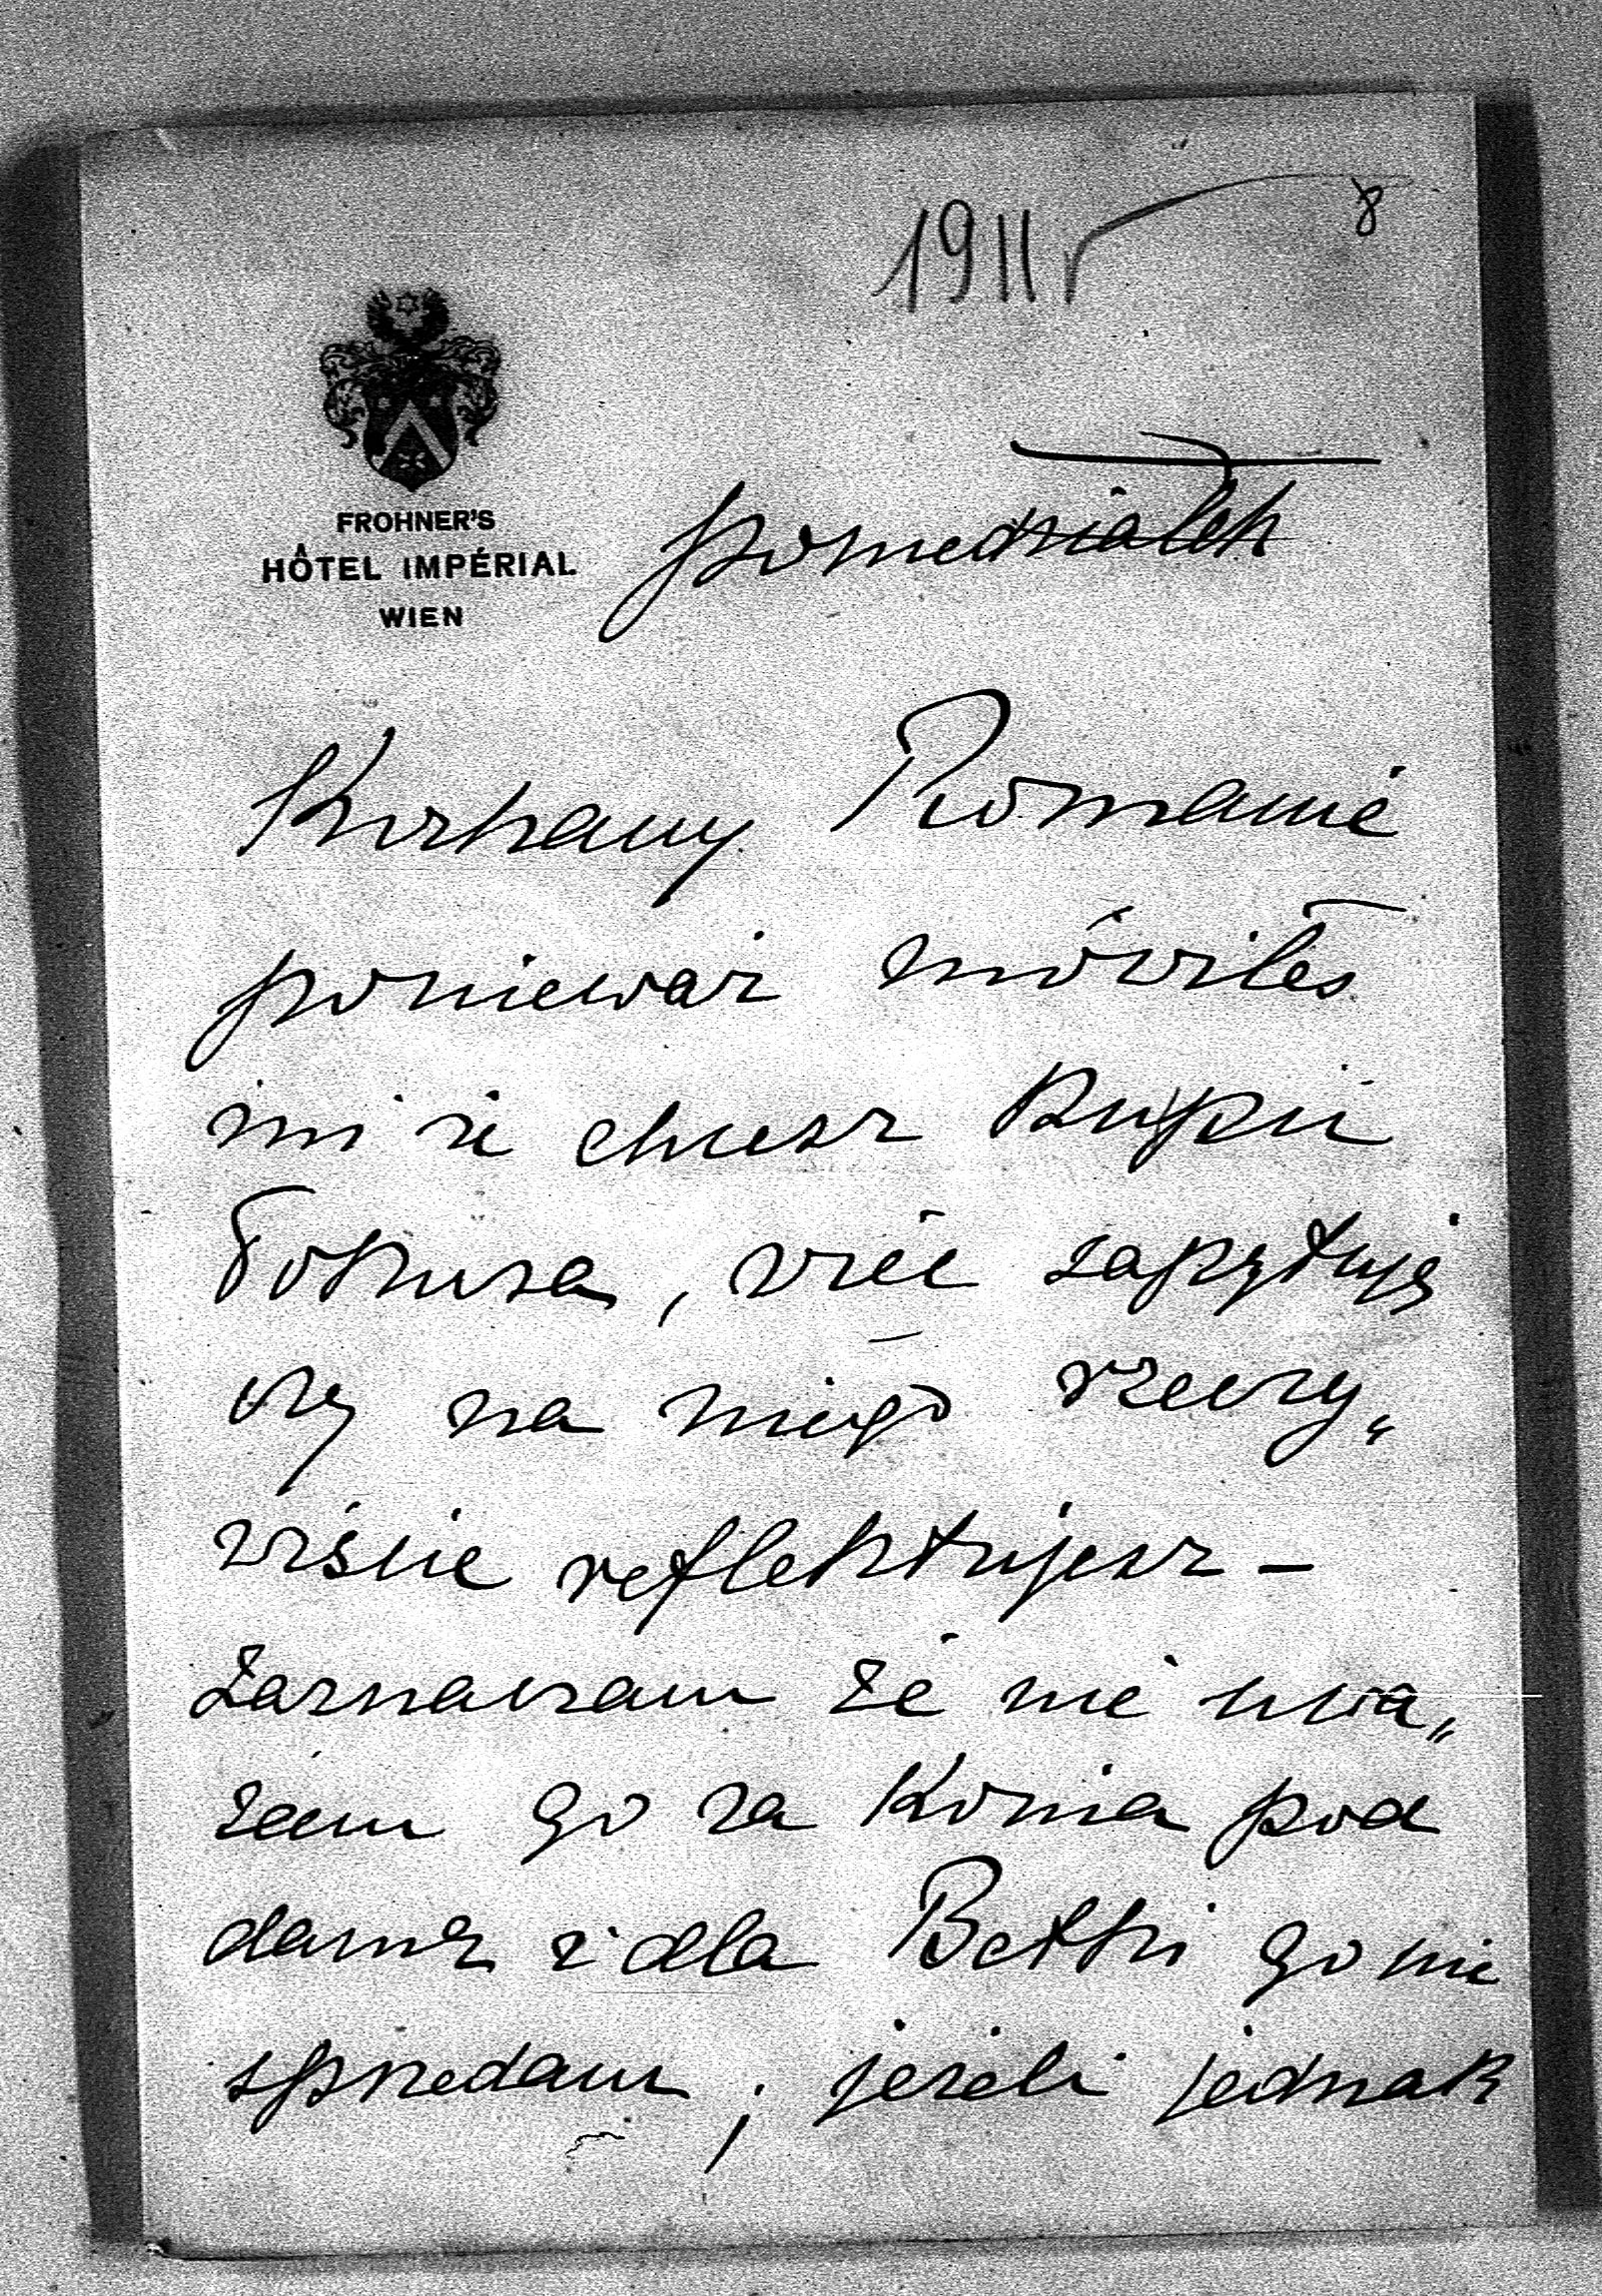 1911 r
8
FROHNER'S
HÔTEL IMPÉRIAL
WIEN
poniedziałek
Kochany Romanie
ponieważ mówiłeś
mi że chcesz kupić
Fokusa, więc zapytuję
czy na niego rzeczy„
wiście reflektujesz –
Zaznaczam że nie uwa„
żam go za konia pod
damę i dla Betki go nie
sprzedam ; jeżeli jednak